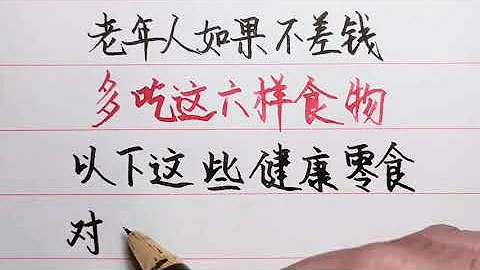 老年人如果不差钱
多吃这六样食物
以下这些健康零食
对